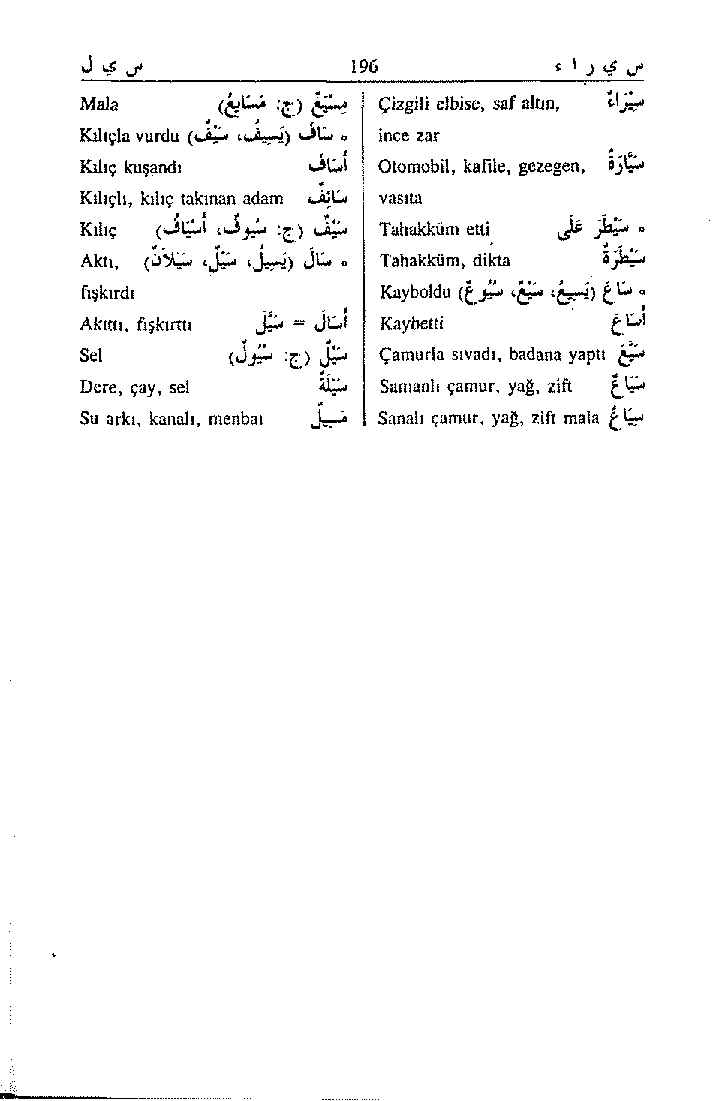 س ي ر ا ء 196 س ي ل
Çizgili elbise, saf altın, سِيَرَاءُ
ince zar
Otomobil, kafile, gezegen, سَيَّارَةٌ
vasıta
Tahakküm etti سَيْطَرَ عَلَى
Tahakküm, dikta سَيْطَرَةٌ
Kayboldu سَاعَ (يَسِيعُ، سَيْعٌ، سُيُوعٌ)
Kaybetti أَسَاعَ
Çamurla sıvadı, badana yaptı سَيَّعَ
Samanlı çamur, yağ, zift سَيَاعٌ
Sanalı çamur, yağ, zift mala سِيَاعٌ
Mala مِسْيَعٌ (ج: مَسَايِعُ)
Kılıçla vurdu سَافَ (يَسِيفُ، سَيْفٌ)
Kılıç kuşandı أَسَافَ
Kılıçlı, kılıç takınan adam سَائِفٌ
Kılıç سَيْفٌ (ج: سُيُوفٌ، أَسْيَافٌ)
Aktı, سَالَ (يَسِيلُ، سَيْلٌ، سَيَلَانٌ)
fışkırdı
Akıttı, fışkırttı أَسَالَ = سَيَّلَ
Sel سَيْلٌ (ج: سُيُولٌ)
Dere, çay, sel سَيْلَةٌ
Su arkı, kanalı, menbaı مَسِيلٌ